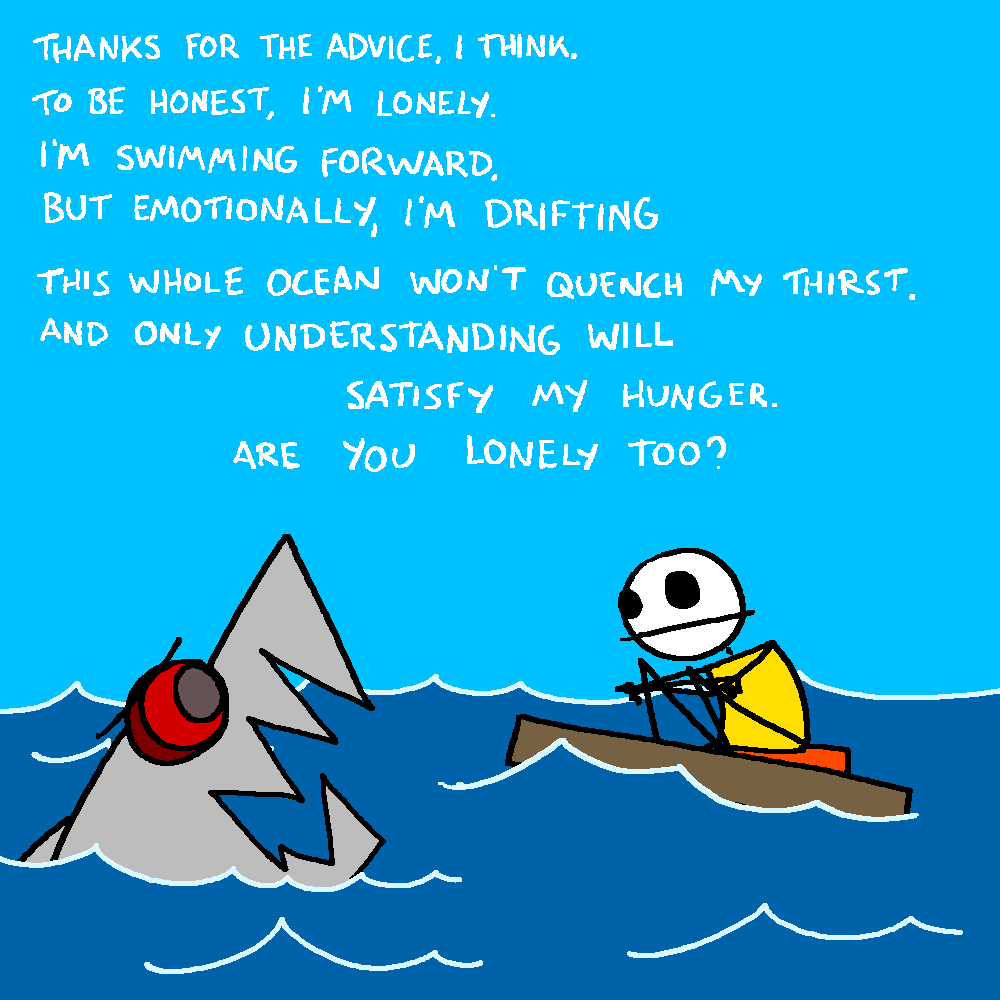 THANKS FOR THE ADVICE, I THINK.
TO BE HONEST, I'M LONELY.
I'M SWIMMING FORWARD.
BUT EMOTIONALLY, I'M DRIFTING
THIS WHOLE OCEAN WON'T QUENCH MY THIRST.
AND ONLY UNDERSTANDING WILL
SATISFY MY HUNGER.
ARE YOU LONELY TOO?